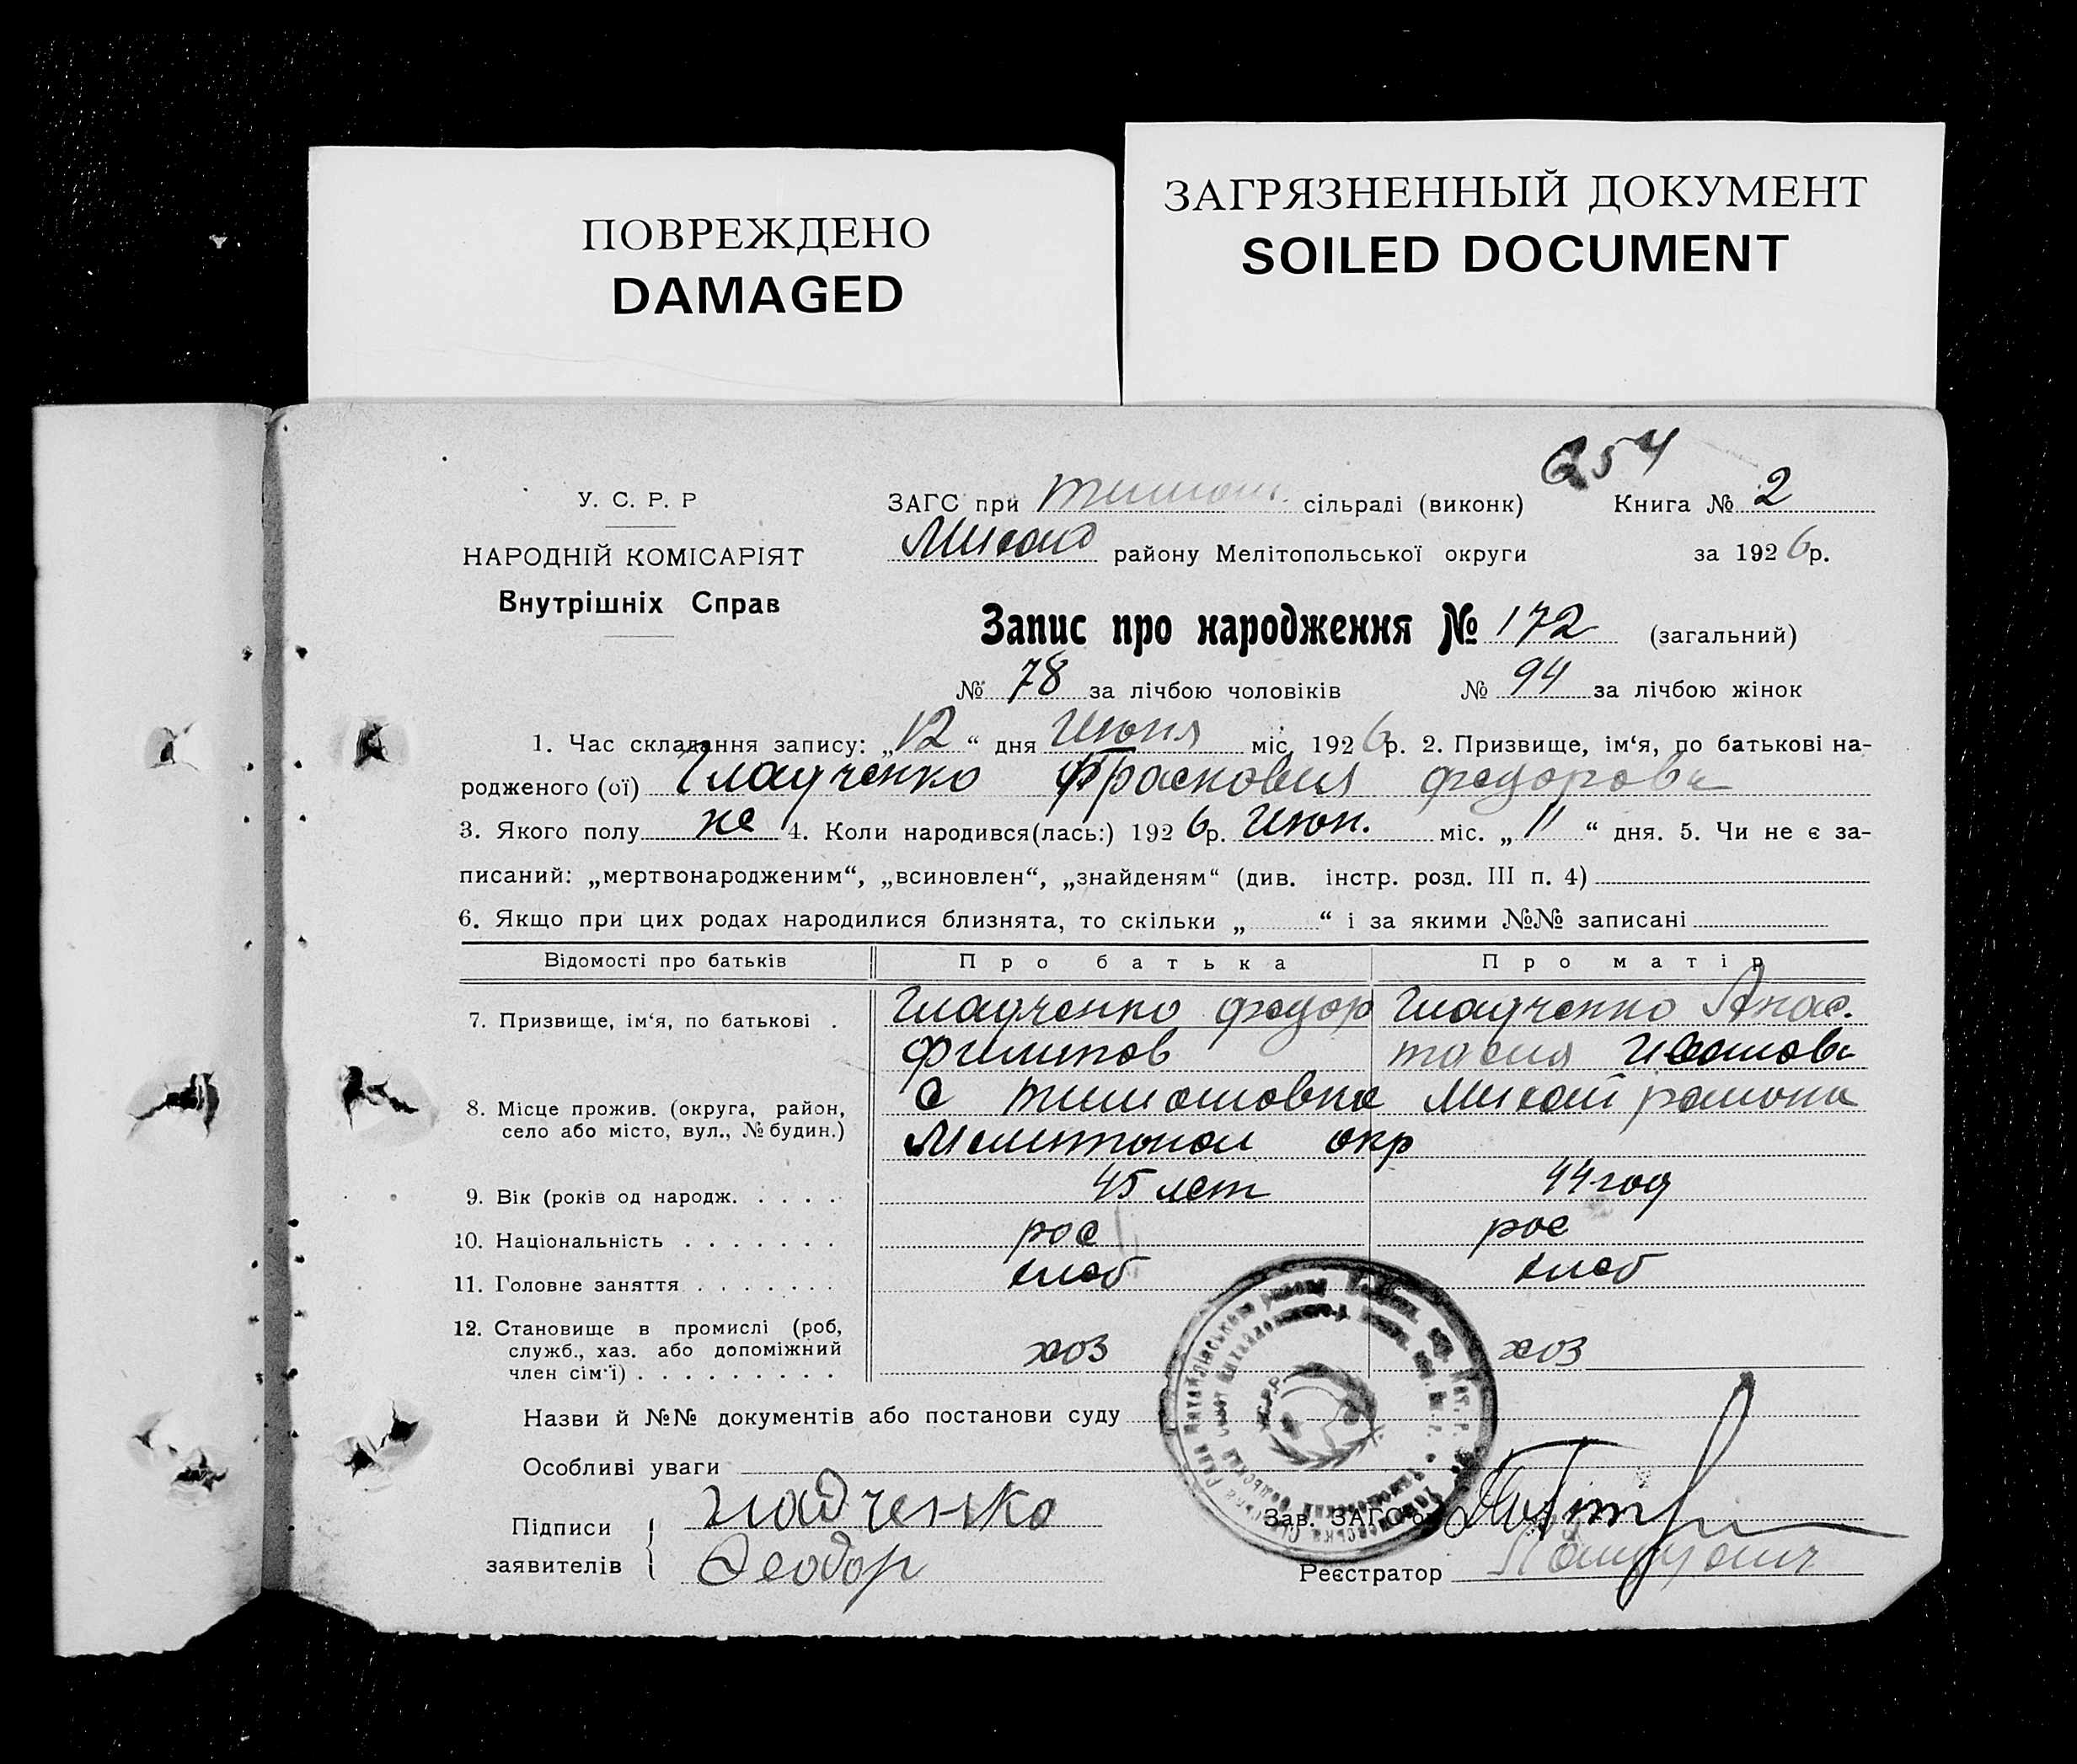 ПОВРЕЖДЕНО
DAMAGED
ЗАГРЯЗНЕННЫЙ ДОКУМЕНТ
SOILED DOCUMENT
254
У. С. Р. Р
НАРОДНІЙ КОМІСАРІЯТ
Внутрішніх Справ
ЗАГС при Тимош. сільраді (виконк) Книга № 2
Михайл району Мелітопольської округи за 1926р.
Запис про народження № 172 (загальний)
№ 78 за лічбою чоловіків № 94 за лічбою жінок
1. Час складання запису: „12“ дня Июня міс. 1926р. 2. Призвище, ім‘я, по батькові на-
родженого (ої) Гладченко Прасковия Федоровн
3. Якого полу же 4. Коли народився(лась:) 1926р. Июн. міс. „11“ дня. 5. Чи не є за-
писаний: „мертвонародженим“, „всиновлен“, „знайденям“ (див. інстр. розд. III п. 4)
6. Якщо при цих родах народилися близнята, то скільки „ “ і за якими №№ записані
Відомості про батьків Про батька Про матір
7. Призвище, ім‘я, по батькові . Гладченко Федор Гладченко Анас.
Филипов тасия Ивановн
8. Місце прожив. (округа, район, село або місто, вул., № будин.) С Тимошовка Михай района
Мелитопол окр
9. Вік (років од народж. . . . . 45 лет 44 год
10. Національність . . . . . . . рос рос
11. Головне заняття . . . . . . . хлеб хлеб
12. Становище в промислі (роб,
служб., хаз. або допоміжний
член сім‘ї) . . . . . . . . . хоз хоз
Назви й №№ документів або постанови суду
Особливі уваги
Підписи
заявителів
Гладченко
Феодор
Зав. ЗАГС‘ом
Реєстратор